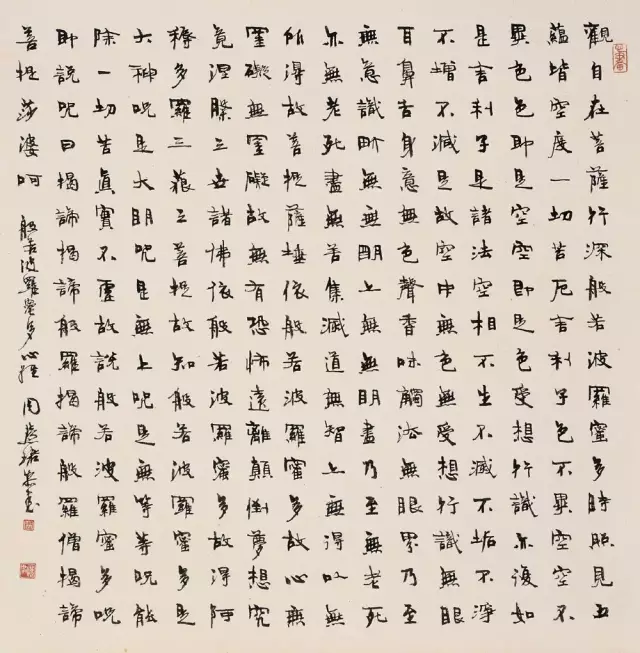 觀自在菩薩行深般若波羅蜜多時照見五
蘊皆空度一切苦厄舍利子色不異空空不
異色色即是空空即是色受想行識亦復如
是舍利子是諸法空相不生不滅不垢不淨
不增不減是故空中無色無受想行識無眼
耳鼻舌身意無色聲香味觸法無眼界乃至
無意識界無無明亦無無明盡乃至無老死
亦無老死盡無苦集滅道無智亦無得以無
所得故菩提薩埵依般若波羅蜜多故心無
罣礙無罣礙故無有恐怖遠離顛倒夢想究
竟涅槃三世諸佛依般若波羅蜜多故得阿
耨多羅三藐三菩提故知般若波羅蜜多是
大神呪是大明呪是無上呪是無等等呪能
除一切苦眞實不虛故說般若波羅蜜多呪
即說呪曰揭諦揭諦般羅揭諦般羅僧揭諦
菩提莎婆呵
般若波羅蜜多心經 周